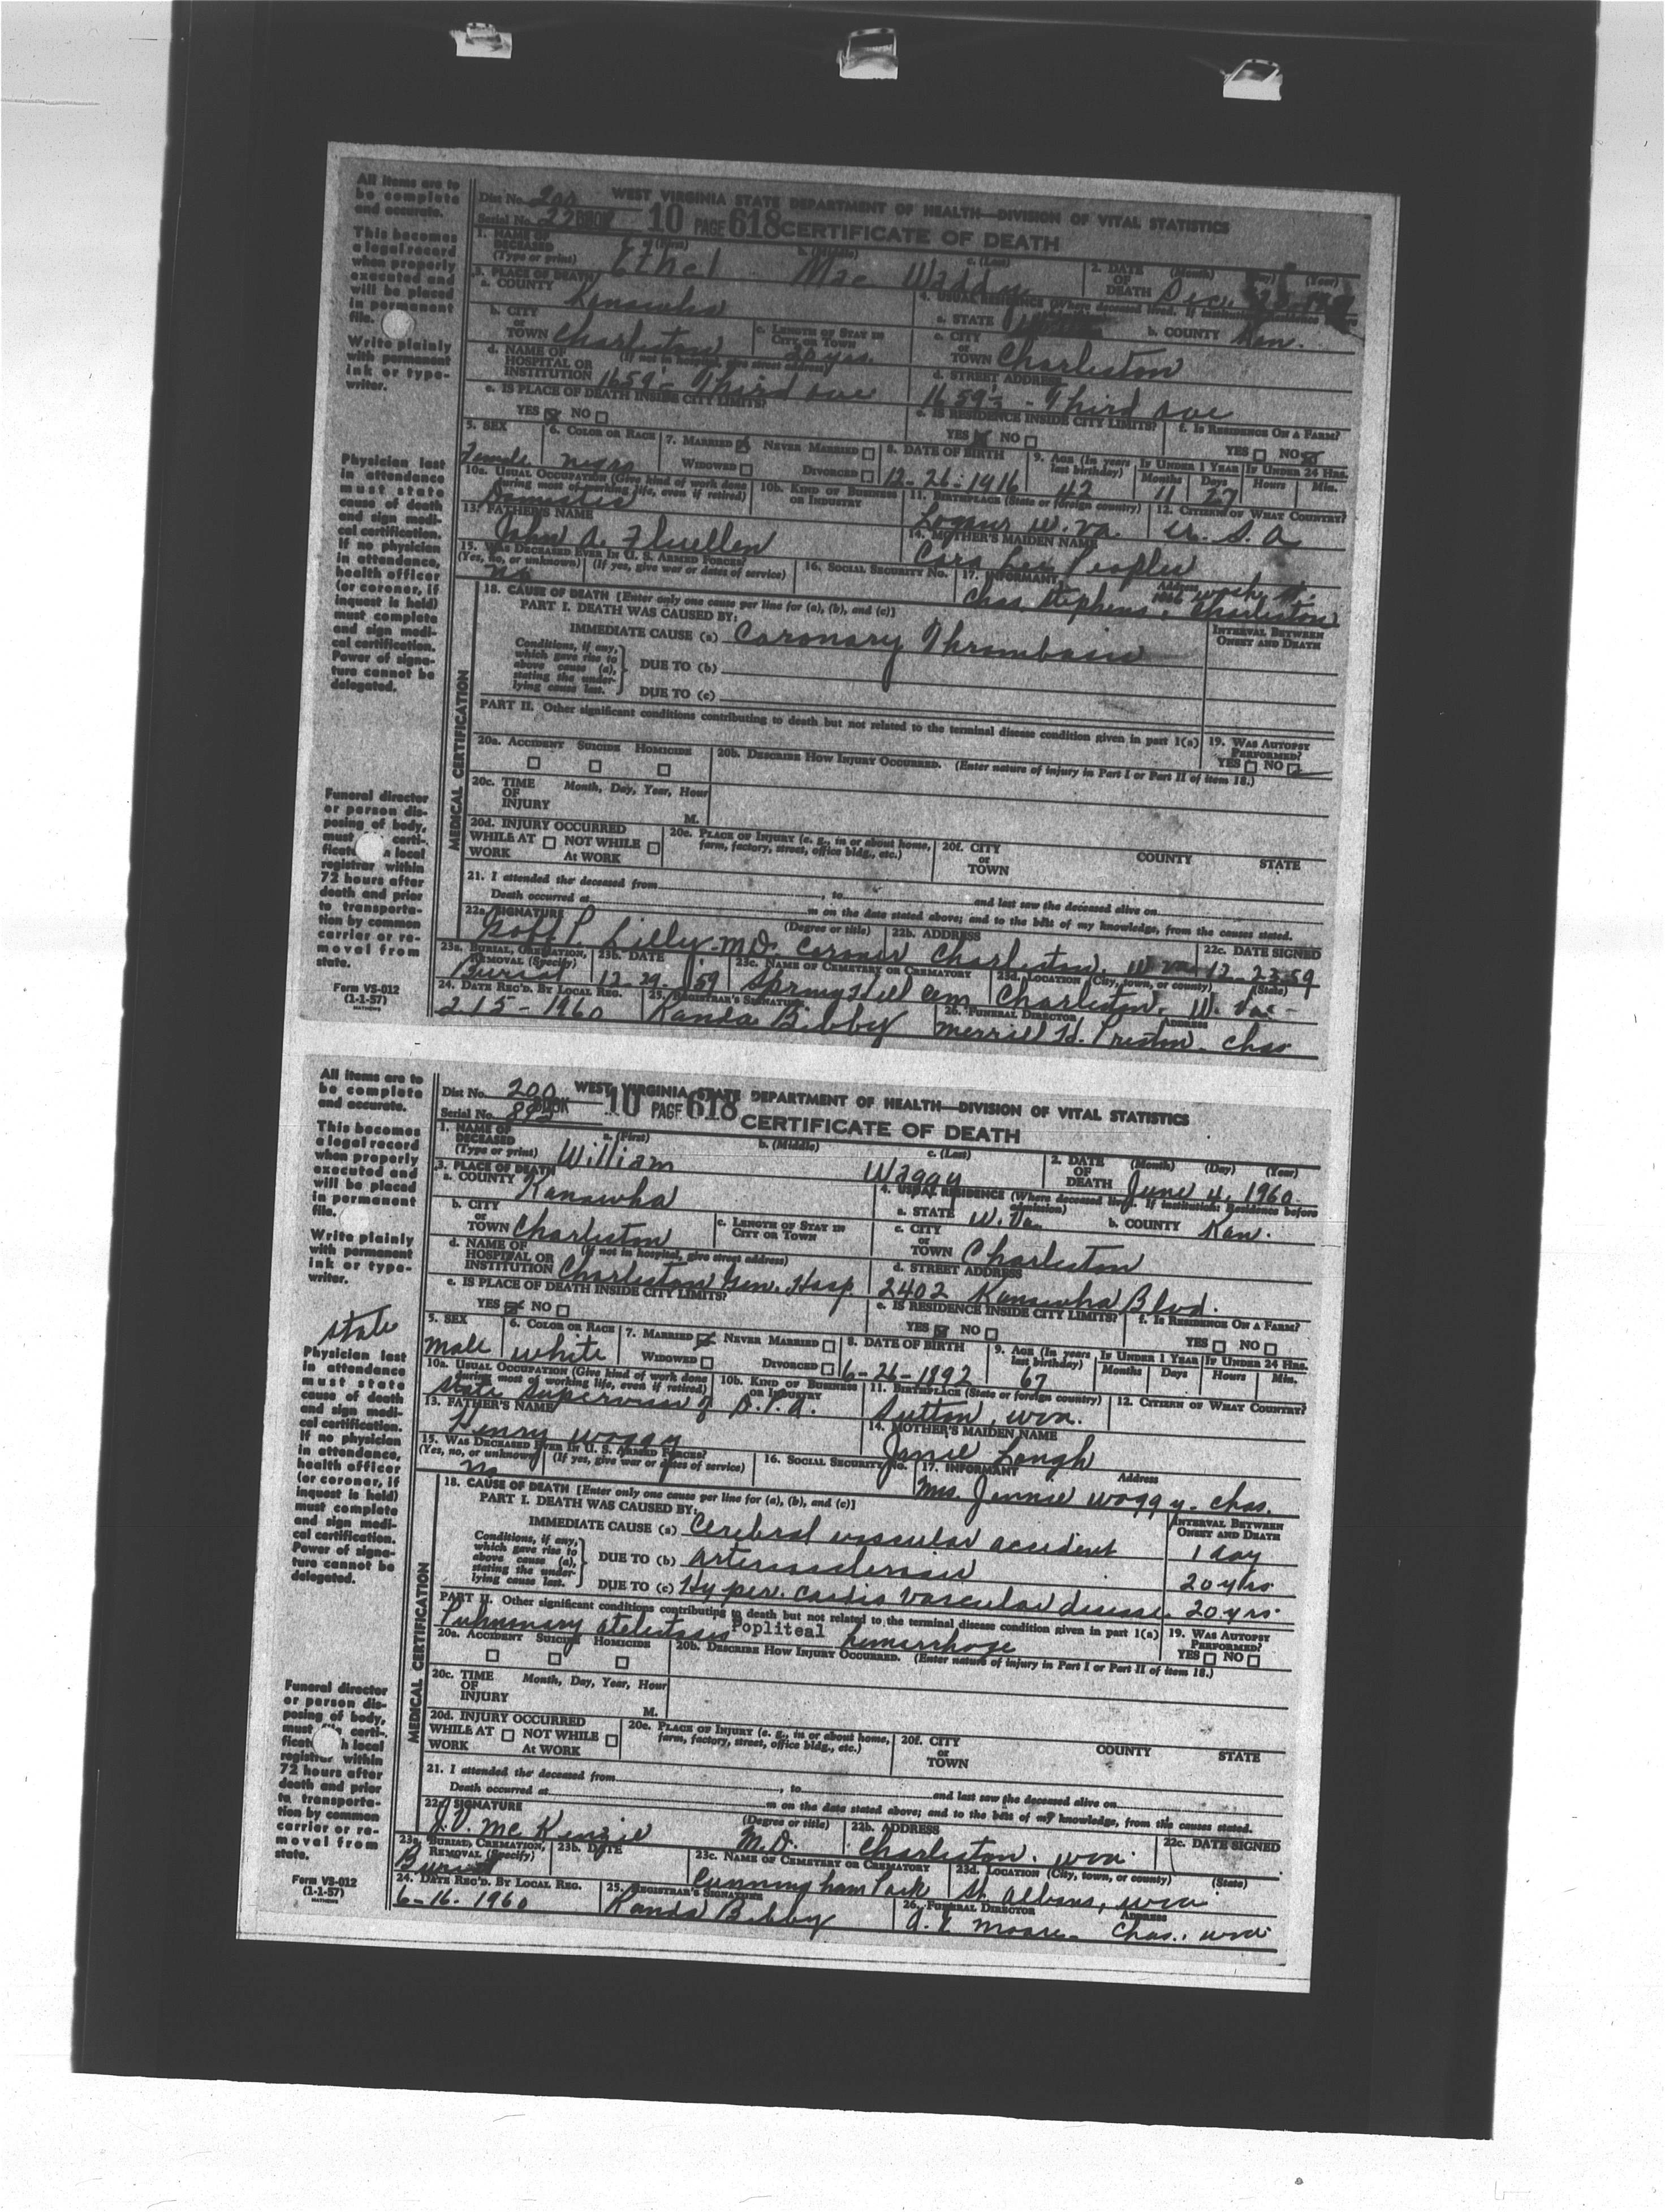 All items are to
be complete
and accurate.
This becomes
a legal record
when properly
executed and
will be placed
in permanent
file.
Write plainly
with permanent
ink or type-
writer.
Physician last
in attendance
must state
cause of death
and sign medi-
cal certification.
If no physician
in attendance,
health officer
(or coroner, if
inquest is held)
must complete
and sign medi-
cal certification.
Power of signa-
ture cannot be
delegated.
Funeral director
or person dis-
posing of body,
must certi-
ficate local
registrar within
72 hours after
death and prior
to transporta-
tion by common
carrier or re-
moval from
state.
Form VS-012
(1-1-57)
Dist No. 200 WEST VIRGINIA STATE DEPARTMENT OF HEALTH—DIVISION OF VITAL STATISTICS
Serial No. BOOK 10 PAGE 618 CERTIFICATE OF DEATH
1. NAME OF DECEASED (Type or print) a. (First) Ethel b. (Middle) Mae c. (Last) Waddy 2. DATE OF DEATH (Month) (Day) (Year) Dec.
3. PLACE OF DEATH a. COUNTY Kanawha 4. USUAL RESIDENCE (Where deceased lived. If institution: Residence before
a. STATE b. COUNTY Kan.
b. CITY or TOWN Charleston c. LENGTH OF STAY IN CITY OR TOWN 20 yrs. c. CITY or TOWN Charleston
d. NAME OF HOSPITAL OR INSTITUTION (If not in hospital, give street address) 1659½ - Third ave d. STREET ADDRESS 1659½ - Third ave
e. IS PLACE OF DEATH INSIDE CITY LIMITS? YES NO e. IS RESIDENCE INSIDE CITY LIMITS? YES NO f. IS RESIDENCE ON A FARM? YES NO
5. SEX Female 6. COLOR OR RACE negro 7. MARRIED NEVER MARRIED WIDOWED DIVORCED 8. DATE OF BIRTH 12-26-1916 9. AGE (In years last birthday) 42 IF UNDER 1 YEAR Months 11 Days 27 IF UNDER 24 HRS. Hours Min.
10a. USUAL OCCUPATION (Give kind of work done during most of working life, even if retired) Domestic 10b. KIND OF BUSINESS OR INDUSTRY 11. BIRTHPLACE (State or foreign country) W. Va. 12. CITIZEN OF WHAT COUNTRY? U. S. A
13. FATHER'S NAME John A. Fluellen 14. MOTHER'S MAIDEN NAME Cora Lee Peoples
15. WAS DECEASED EVER IN U. S. ARMED FORCES? (Yes, no, or unknown) (If yes, give war or dates of service) no 16. SOCIAL SECURITY No. 17. INFORMANT Address Chas. Stephens, Wash St. Charleston
18. CAUSE OF DEATH [Enter only one cause per line for (a), (b), and (c)]
PART I. DEATH WAS CAUSED BY: INTERVAL BETWEEN ONSET AND DEATH
IMMEDIATE CAUSE (a) Coronary Thrombosis
Conditions, if any, which gave rise to above cause (a), stating the under-lying cause last. DUE TO (b)
DUE TO (c)
PART II. Other significant conditions contributing to death but not related to the terminal disease condition given in part 1(a) 19. WAS AUTOPSY PERFORMED? YES NO
20a. ACCIDENT SUICIDE HOMICIDE 20b. DESCRIBE HOW INJURY OCCURRED. (Enter nature of injury in Part I or Part II of item 18.)
20c. TIME OF INJURY Month, Day, Year, Hour M.
20d. INJURY OCCURRED WHILE AT WORK NOT WHILE AT WORK 20e. PLACE OF INJURY (e. g., in or about home, farm, factory, street, office bldg., etc.) 20f. CITY or TOWN COUNTY STATE
21. I attended the deceased from , to and last saw the deceased alive on
Death occurred at m on the date stated above; and to the best of my knowledge, from the causes stated.
22a. SIGNATURE Goff P. Lilly M.D. (Degree or title) Coroner 22b. ADDRESS Charleston, W. Va. 22c. DATE SIGNED 12-23-59
23a. BURIAL, CREMATION, REMOVAL (Specify) Burial 23b. DATE 12-29-59 23c. NAME OF CEMETERY OR CREMATORY Spring Hill Cem 23d. LOCATION (City, town, or county) (State) Charleston, W. Va.
24. DATE REC'D. BY LOCAL REG. 2 15-1960 25. REGISTRAR'S SIGNATURE Kanda Bibby 26. FUNERAL DIRECTOR ADDRESS Merrill H. Preston - Chas
All items are to
be complete
and accurate.
This becomes
a legal record
when properly
executed and
will be placed
in permanent
file.
Write plainly
with permanent
ink or type-
writer.
state
Physician last
in attendance
must state
cause of death
and sign medi-
cal certification.
If no physician
in attendance,
health officer
(or coroner, if
inquest is held)
must complete
and sign medi-
cal certification.
Power of signa-
ture cannot be
delegated.
Funeral director
or person dis-
posing of body,
must certi-
ficate local
registrar within
72 hours after
death and prior
to transporta-
tion by common
carrier or re-
moval from
state.
Form VS-012
(1-1-57)
Dist No. 200 WEST VIRGINIA STATE DEPARTMENT OF HEALTH—DIVISION OF VITAL STATISTICS
Serial No. 892 BOOK 10 PAGE 618 CERTIFICATE OF DEATH
1. NAME OF DECEASED (Type or print) a. (First) William b. (Middle) c. (Last) Waggy 2. DATE OF DEATH (Month) (Day) (Year) June 4, 1960
3. PLACE OF DEATH a. COUNTY Kanawha 4. USUAL RESIDENCE (Where deceased lived. If institution: Residence before admission)
a. STATE W. Va. b. COUNTY Kan.
b. CITY or TOWN Charleston c. LENGTH OF STAY IN CITY OR TOWN c. CITY or TOWN Charleston
d. NAME OF HOSPITAL OR INSTITUTION (If not in hospital, give street address) Charleston Gen. Hosp d. STREET ADDRESS 2402 Kanawha Blvd.
e. IS PLACE OF DEATH INSIDE CITY LIMITS? YES NO e. IS RESIDENCE INSIDE CITY LIMITS? YES NO f. IS RESIDENCE ON A FARM? YES NO
5. SEX Male 6. COLOR OR RACE white 7. MARRIED NEVER MARRIED WIDOWED DIVORCED 8. DATE OF BIRTH 6-26-1892 9. AGE (In years last birthday) 67 IF UNDER 1 YEAR Months Days IF UNDER 24 HRS. Hours Min.
10a. USUAL OCCUPATION (Give kind of work done during most of working life, even if retired) State Supervisor of 10b. KIND OF BUSINESS OR INDUSTRY D.P.A. 11. BIRTHPLACE (State or foreign country) Sutton, wva. 12. CITIZEN OF WHAT COUNTRY?
13. FATHER'S NAME Henry Waggy 14. MOTHER'S MAIDEN NAME Janie Lough
15. WAS DECEASED EVER IN U. S. ARMED FORCES? (Yes, no, or unknown) (If yes, give war or dates of service) no 16. SOCIAL SECURITY No. 17. INFORMANT Address Mrs. Jennie Waggy - Chas.
18. CAUSE OF DEATH [Enter only one cause per line for (a), (b), and (c)]
PART I. DEATH WAS CAUSED BY: INTERVAL BETWEEN ONSET AND DEATH
IMMEDIATE CAUSE (a) Cerebral vascular accident 1 day
Conditions, if any, which gave rise to above cause (a), stating the under-lying cause last. DUE TO (b) arteriosclerosis 20 yrs
DUE TO (c) Hyper. cardio vascular disease 20 yrs.
PART II. Other significant conditions contributing to death but not related to the terminal disease condition given in part 1(a) 19. WAS AUTOPSY PERFORMED? YES NO
Pulmonary atelectasis Popliteal hemorrhage
20a. ACCIDENT SUICIDE HOMICIDE 20b. DESCRIBE HOW INJURY OCCURRED. (Enter nature of injury in Part I or Part II of item 18.)
20c. TIME OF INJURY Month, Day, Year, Hour M.
20d. INJURY OCCURRED WHILE AT WORK NOT WHILE AT WORK 20e. PLACE OF INJURY (e. g., in or about home, farm, factory, street, office bldg., etc.) 20f. CITY or TOWN COUNTY STATE
21. I attended the deceased from , to and last saw the deceased alive on
Death occurred at m on the date stated above; and to the best of my knowledge, from the causes stated.
22a. SIGNATURE J.V. McKenzie (Degree or title) M.D. 22b. ADDRESS Charleston, wva 22c. DATE SIGNED
23a. BURIAL, CREMATION, REMOVAL (Specify) Burial 23b. DATE 23c. NAME OF CEMETERY OR CREMATORY Cunningham Park 23d. LOCATION (City, town, or county) (State) St. Albans, wva
24. DATE REC'D. BY LOCAL REG. 6-16-1960 25. REGISTRAR'S SIGNATURE Kanda Bibby 26. FUNERAL DIRECTOR Address Moore - Chas. wva
MEDICAL CERTIFICATION
MEDICAL CERTIFICATION